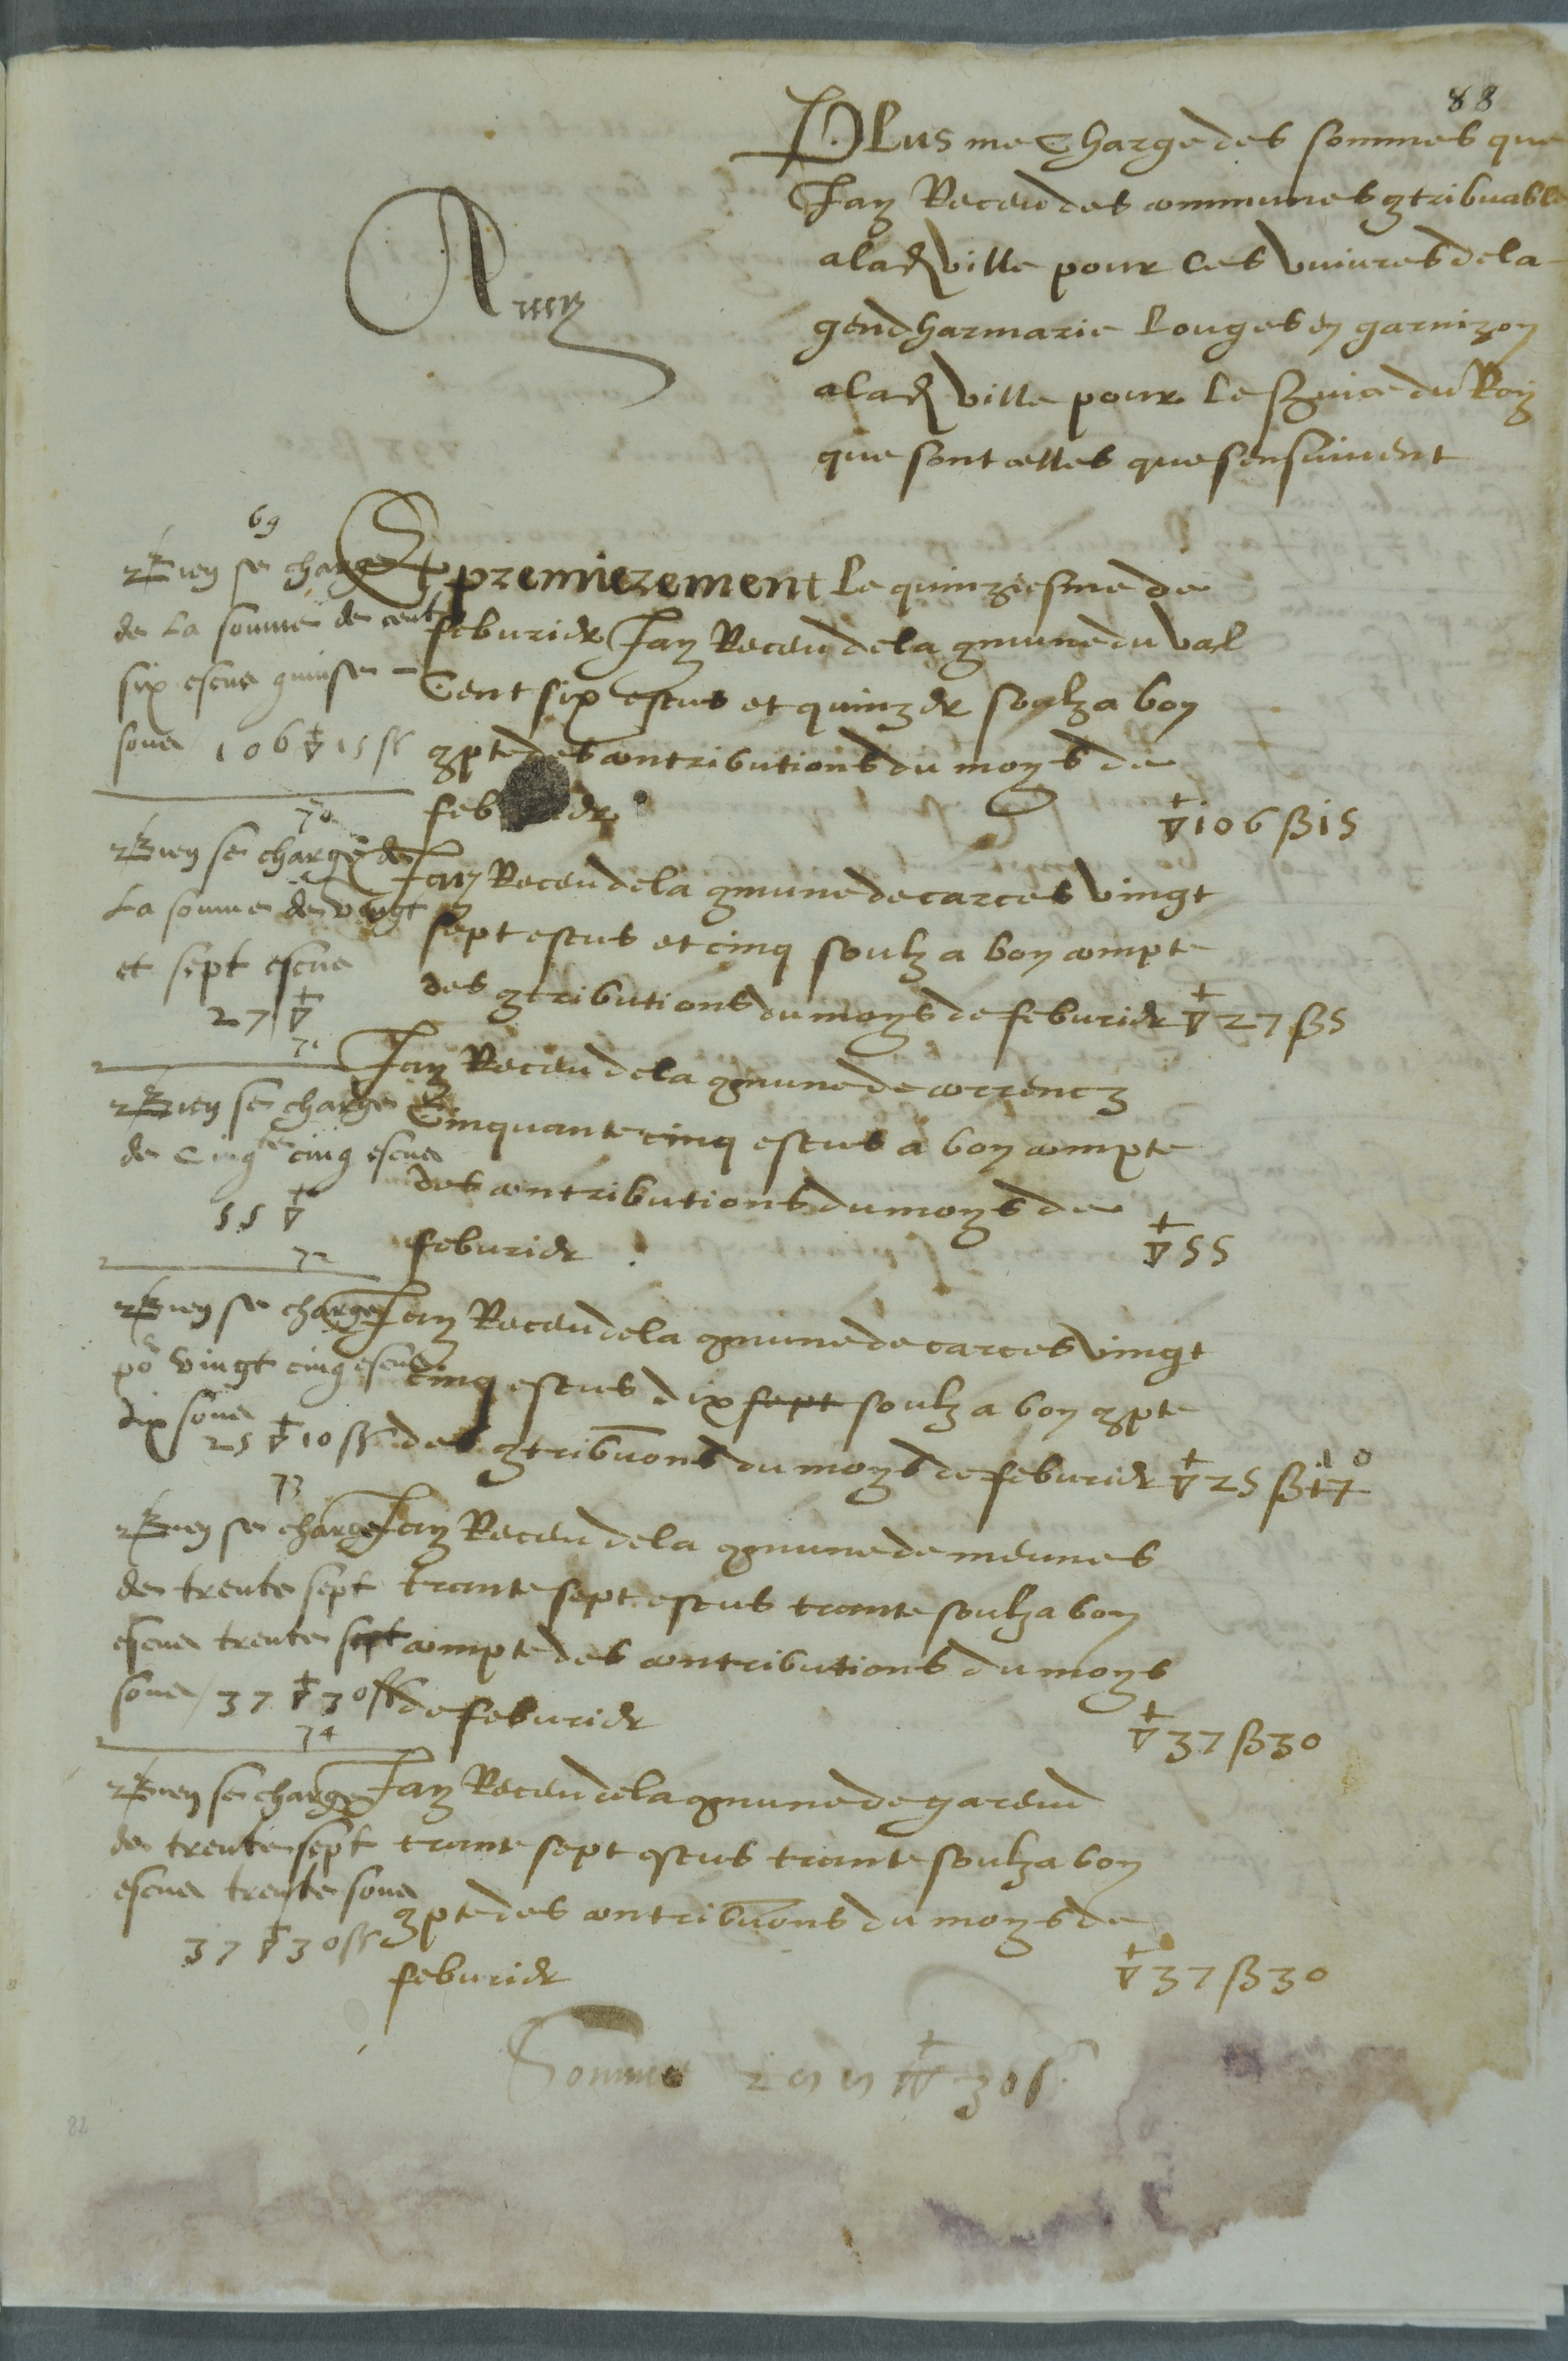 88
Plus me Charge des sommes que
Jay Receu des communes gtribuables
a lad ville pour les vivres de la
gendharmarie Louges en garnizon
a lad ville pour le service du Roy
que sont celles que sensuivent
69
Rien se charge
de La somme de cent
six escus quinse
souz 106 ▽ 15 ss
Et premierement le quinziesme de
feburier Jay Receu de la gmune du val
Cent six escus et quinze soulz a bon
gpte des contributions du moys de
feburier
▽ 106 ß 15
70
Rien se charge de
La somme de vingt
et sept escus
27 ▽
Jay Receu de la gmune de carces vingt
sept escus et cinq soulz a bon compte
des gtributions du moys de feburier ▽ 27 ß 5
71
Rien se charge
de cinqte cinq escus
55 ▽
Jay Receu de la gmune de correncz
Cinquante cinq escus a bon compte
des contributions du moys de
feburier
▽ 55
72
Rien se charge
po vingt cinq escus
dix souz
25 ▽ 10 ss
Jay Receu de la gmune de carces vingt
cinq escus dix sept soulz a bon gpte
des gtribuons du moys de feburier ▽ 25 ß 17 10
73
Rien se charge
de trente sept
escus trente sept
souz 37 ▽ 30 ss
Jay Receu de la gmune de meunes
trante sept escus trante soulz a bon
compte des contributions du moys
de feburier
▽ 37 ß 30
74
Rien se charge
de trente sept
escus trente souz
37 ▽ 30 ss
Jay Receu de la gmune de gareud
trante sept escus trante soulz a bon
gpte des contribuons du moys de
feburier
▽ 37 ß 30
Somme
82